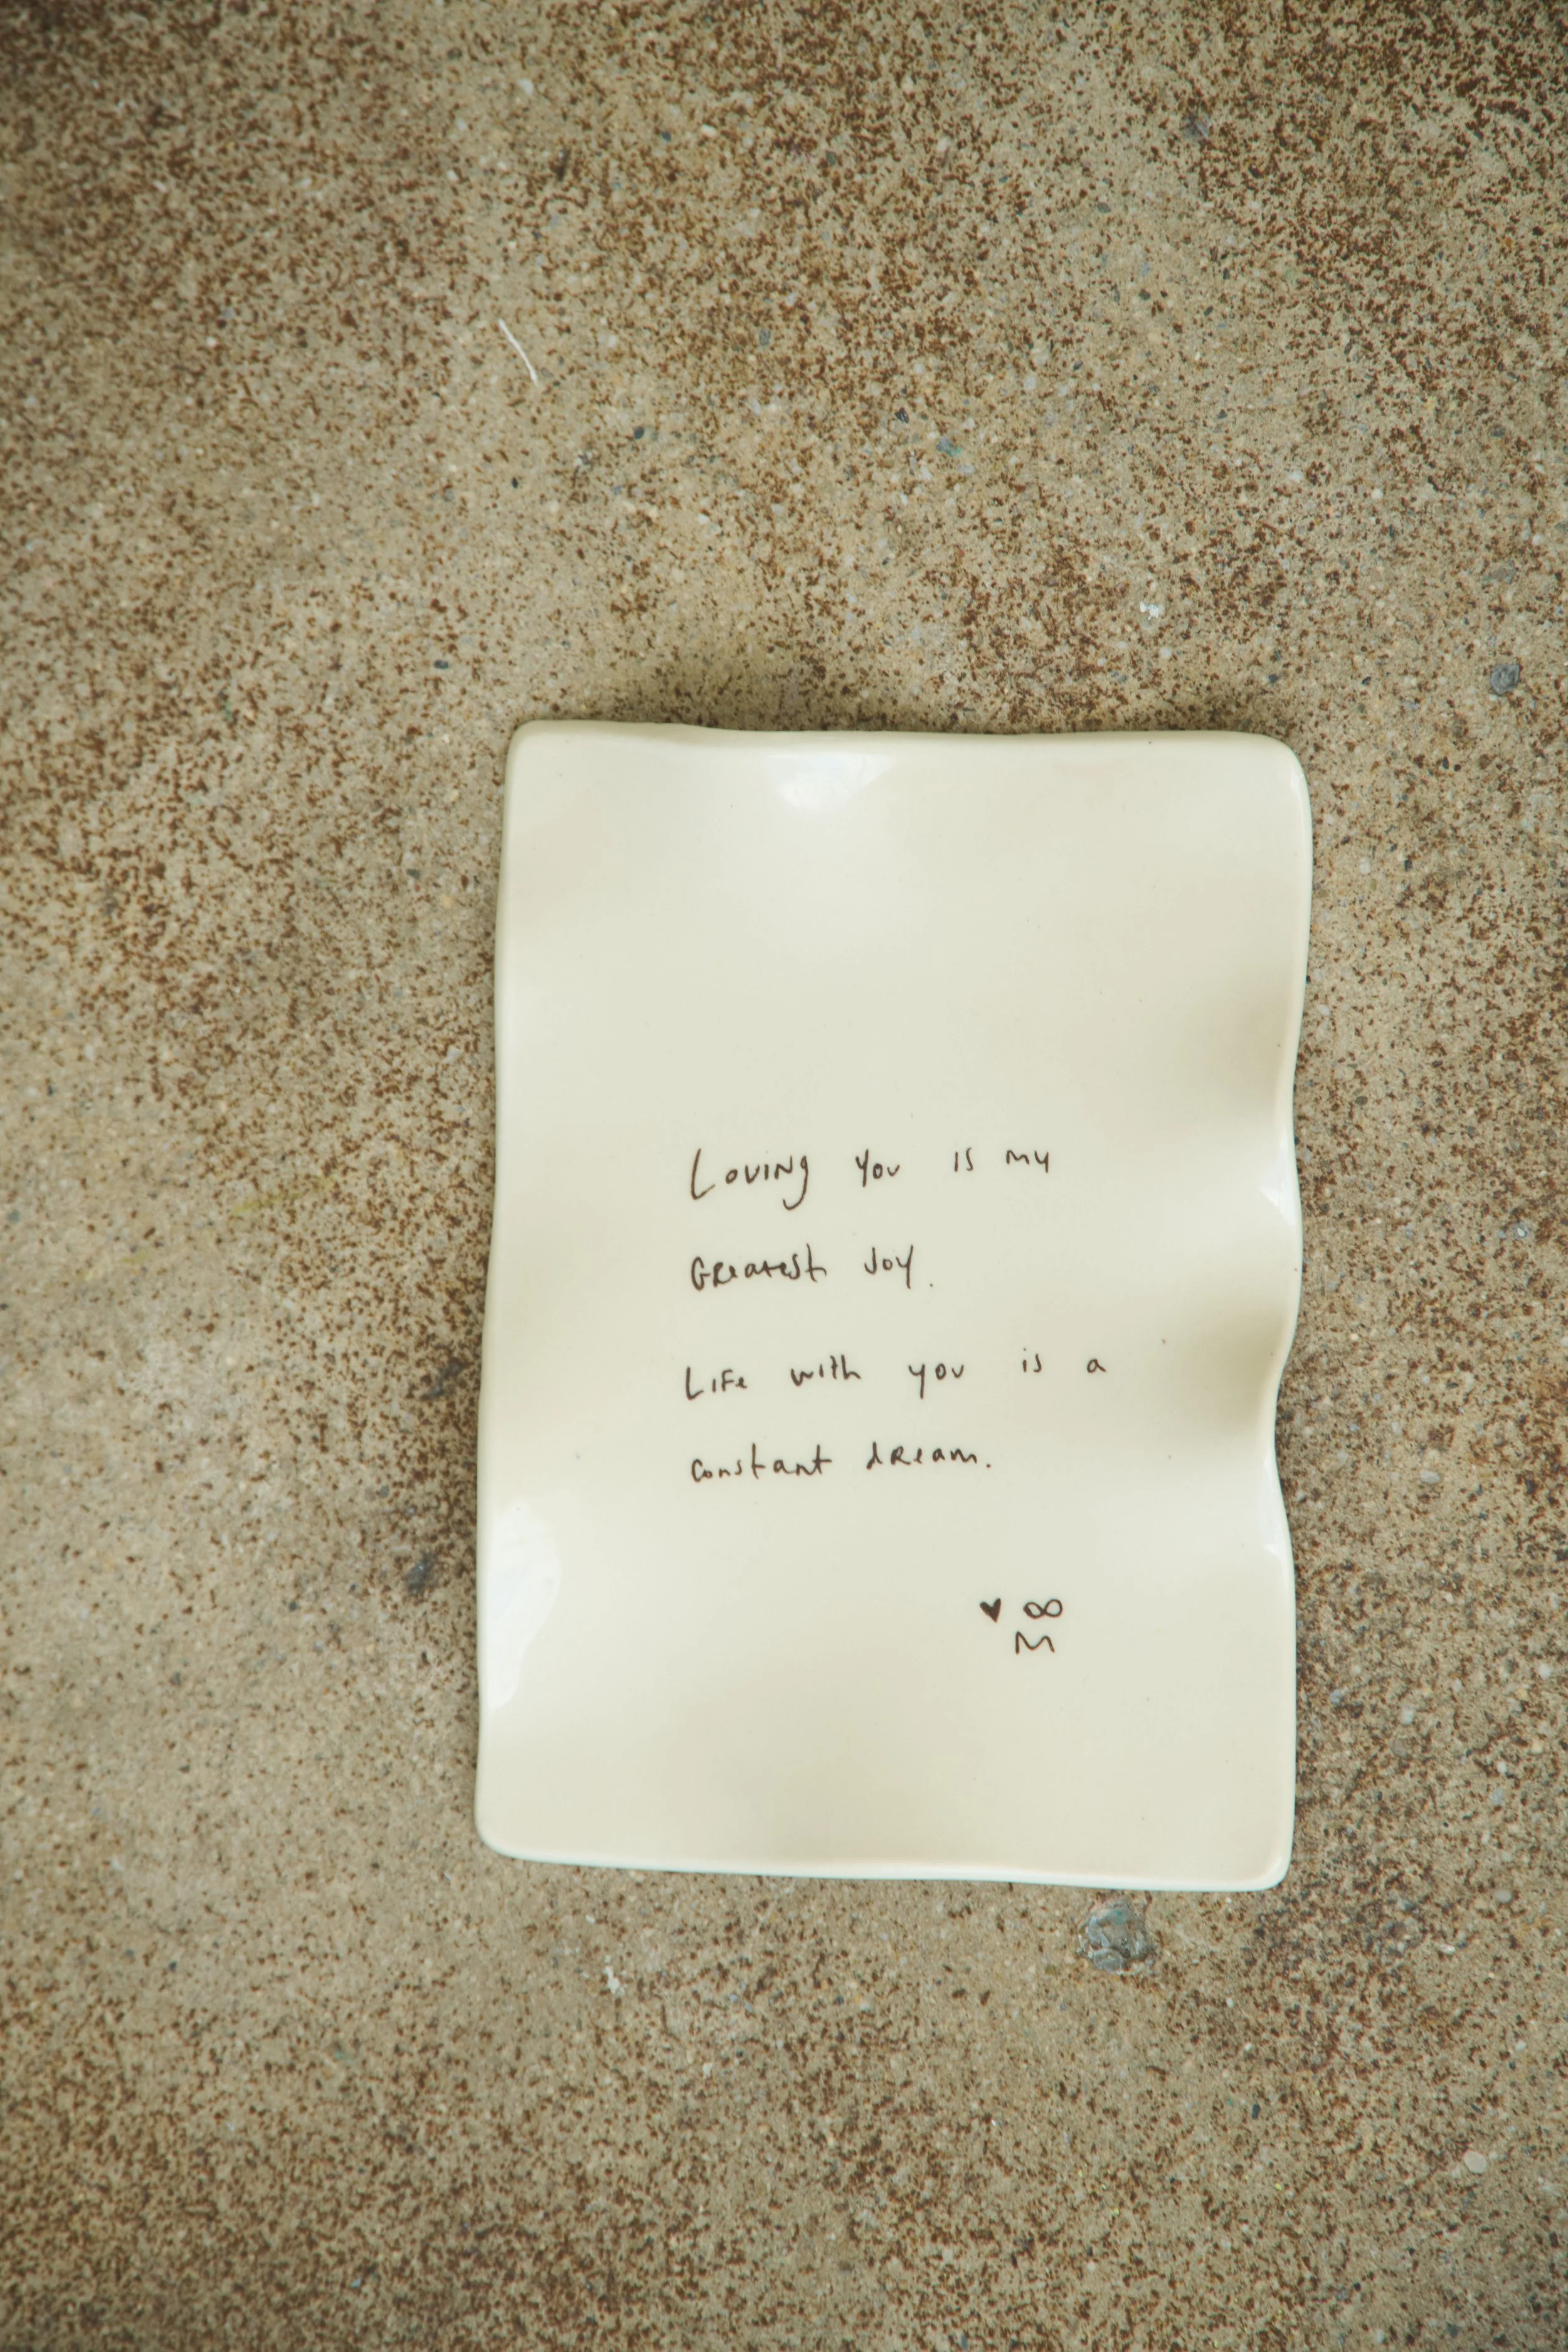 Loving you is my
Greatest Joy.
Life with you is a
constant dream.
♥ ∞
M